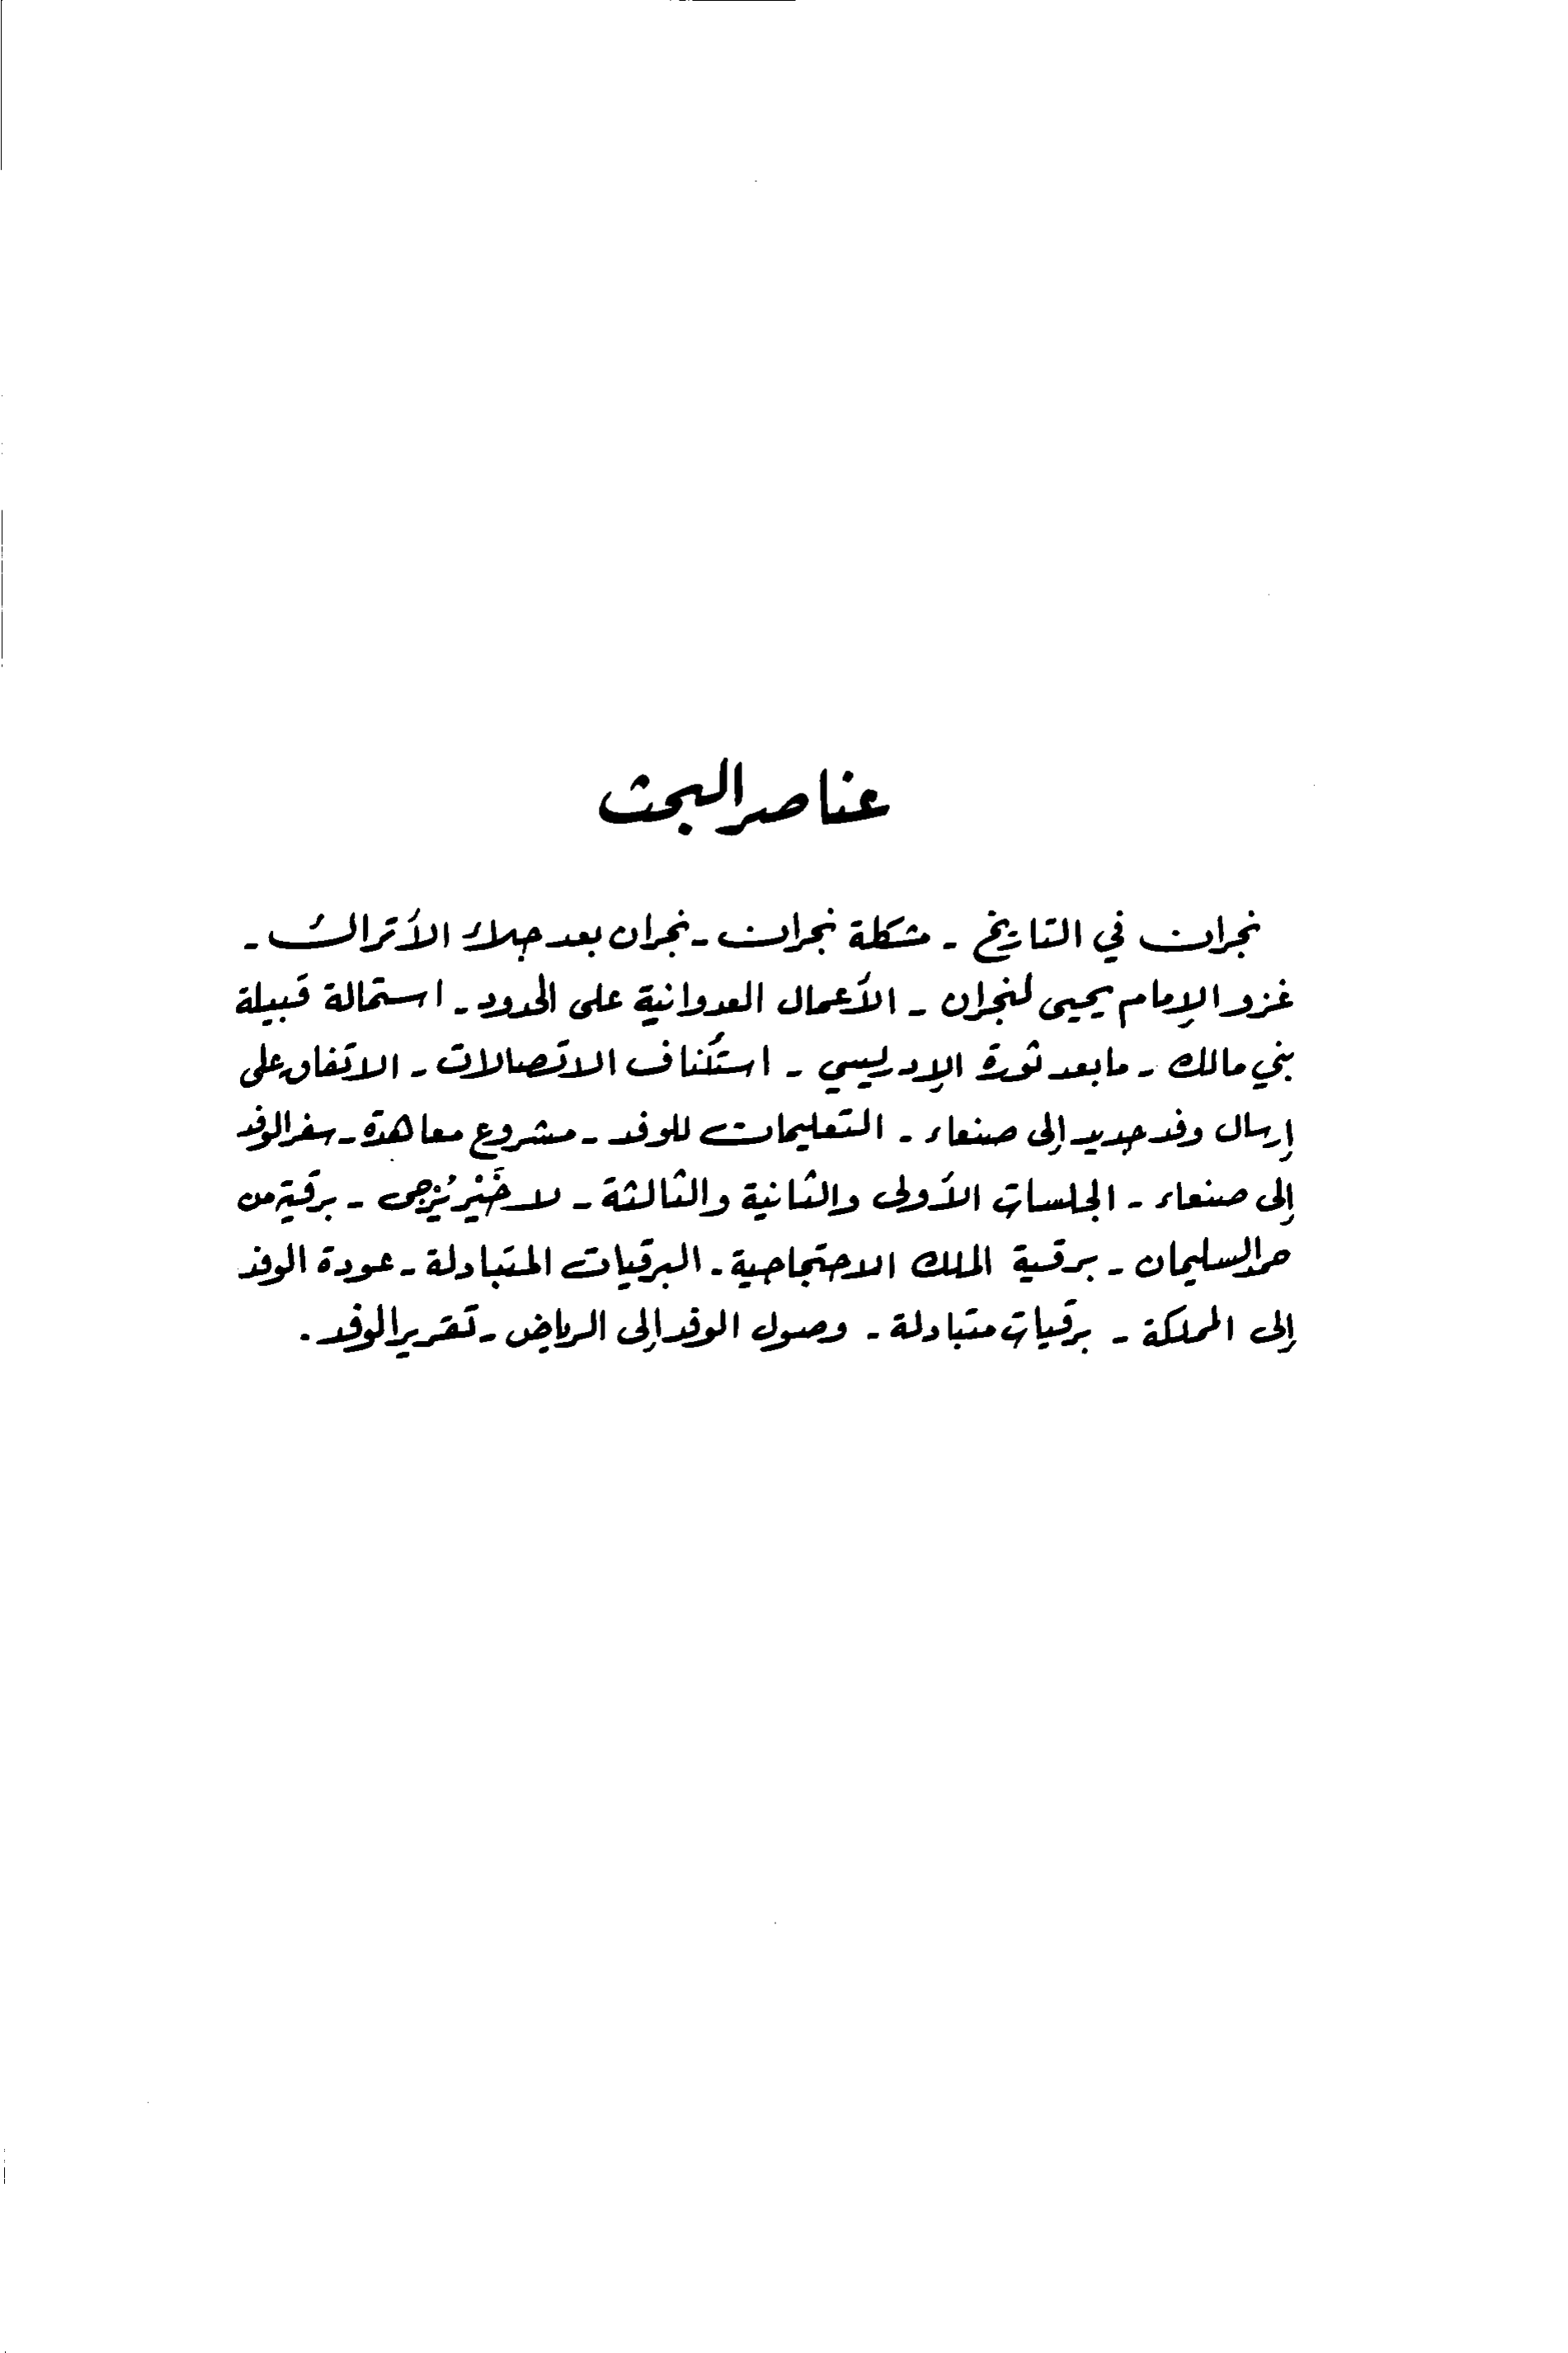 عناصر البحث
نجران في التاريخ - مشكلة نجران - نجران بعد جلاء الأتراك -
غزو الإمام يحيى لنجران - الأعمال العدوانية على الحدود - استمالة قبيلة
بني مالك - ما بعد ثورة الإدريسي - استئناف الاتصالات - الاتفاق على
إرسال وفد جديد إلى صنعاء - التعليمات للوفد - مشروع معاهدة - سفر الوفد
إلى صنعاء - الجلسات الأولى والثانية والثالثة - لا خَيْر يُرْجى - برقية من
حمد السليمان - برقية الملك الاحتجاجية - البرقيات المتبادلة - عودة الوفد
إلى المملكة - برقيات متبادلة - وصول الوفد إلى الرياض - تقرير الوفد .